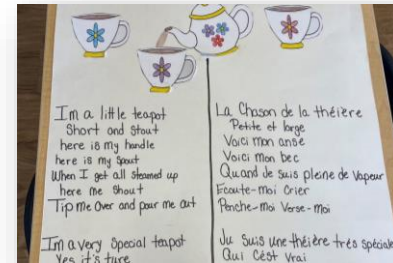 Im a little teapot
Short and stout
here is my handle
here is my spout
When I get all steamed up
here me shout
Tip me over and pour me out
Im a very special teapot
Yes it's ture
La Chason de la théière
Petite et large
Voici mon anse
Voici mon bec
Quand Je suis pleine de vapeur
Ecoute-moi Crier
Penche-moi Verse-moi
Ju Suis une théière très spéciale
Qui Cést Vrai